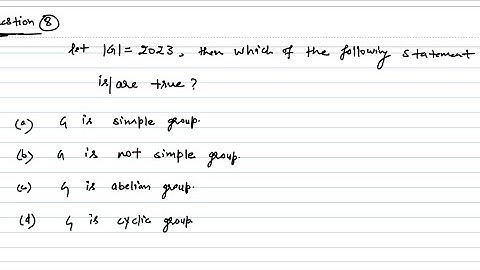 estion 8
Let |G| = 2023, then which of the following statement
is/are true?
(a) G is simple group.
(b) G is not simple group.
(c) G is abelian group.
(d) G is cyclic group